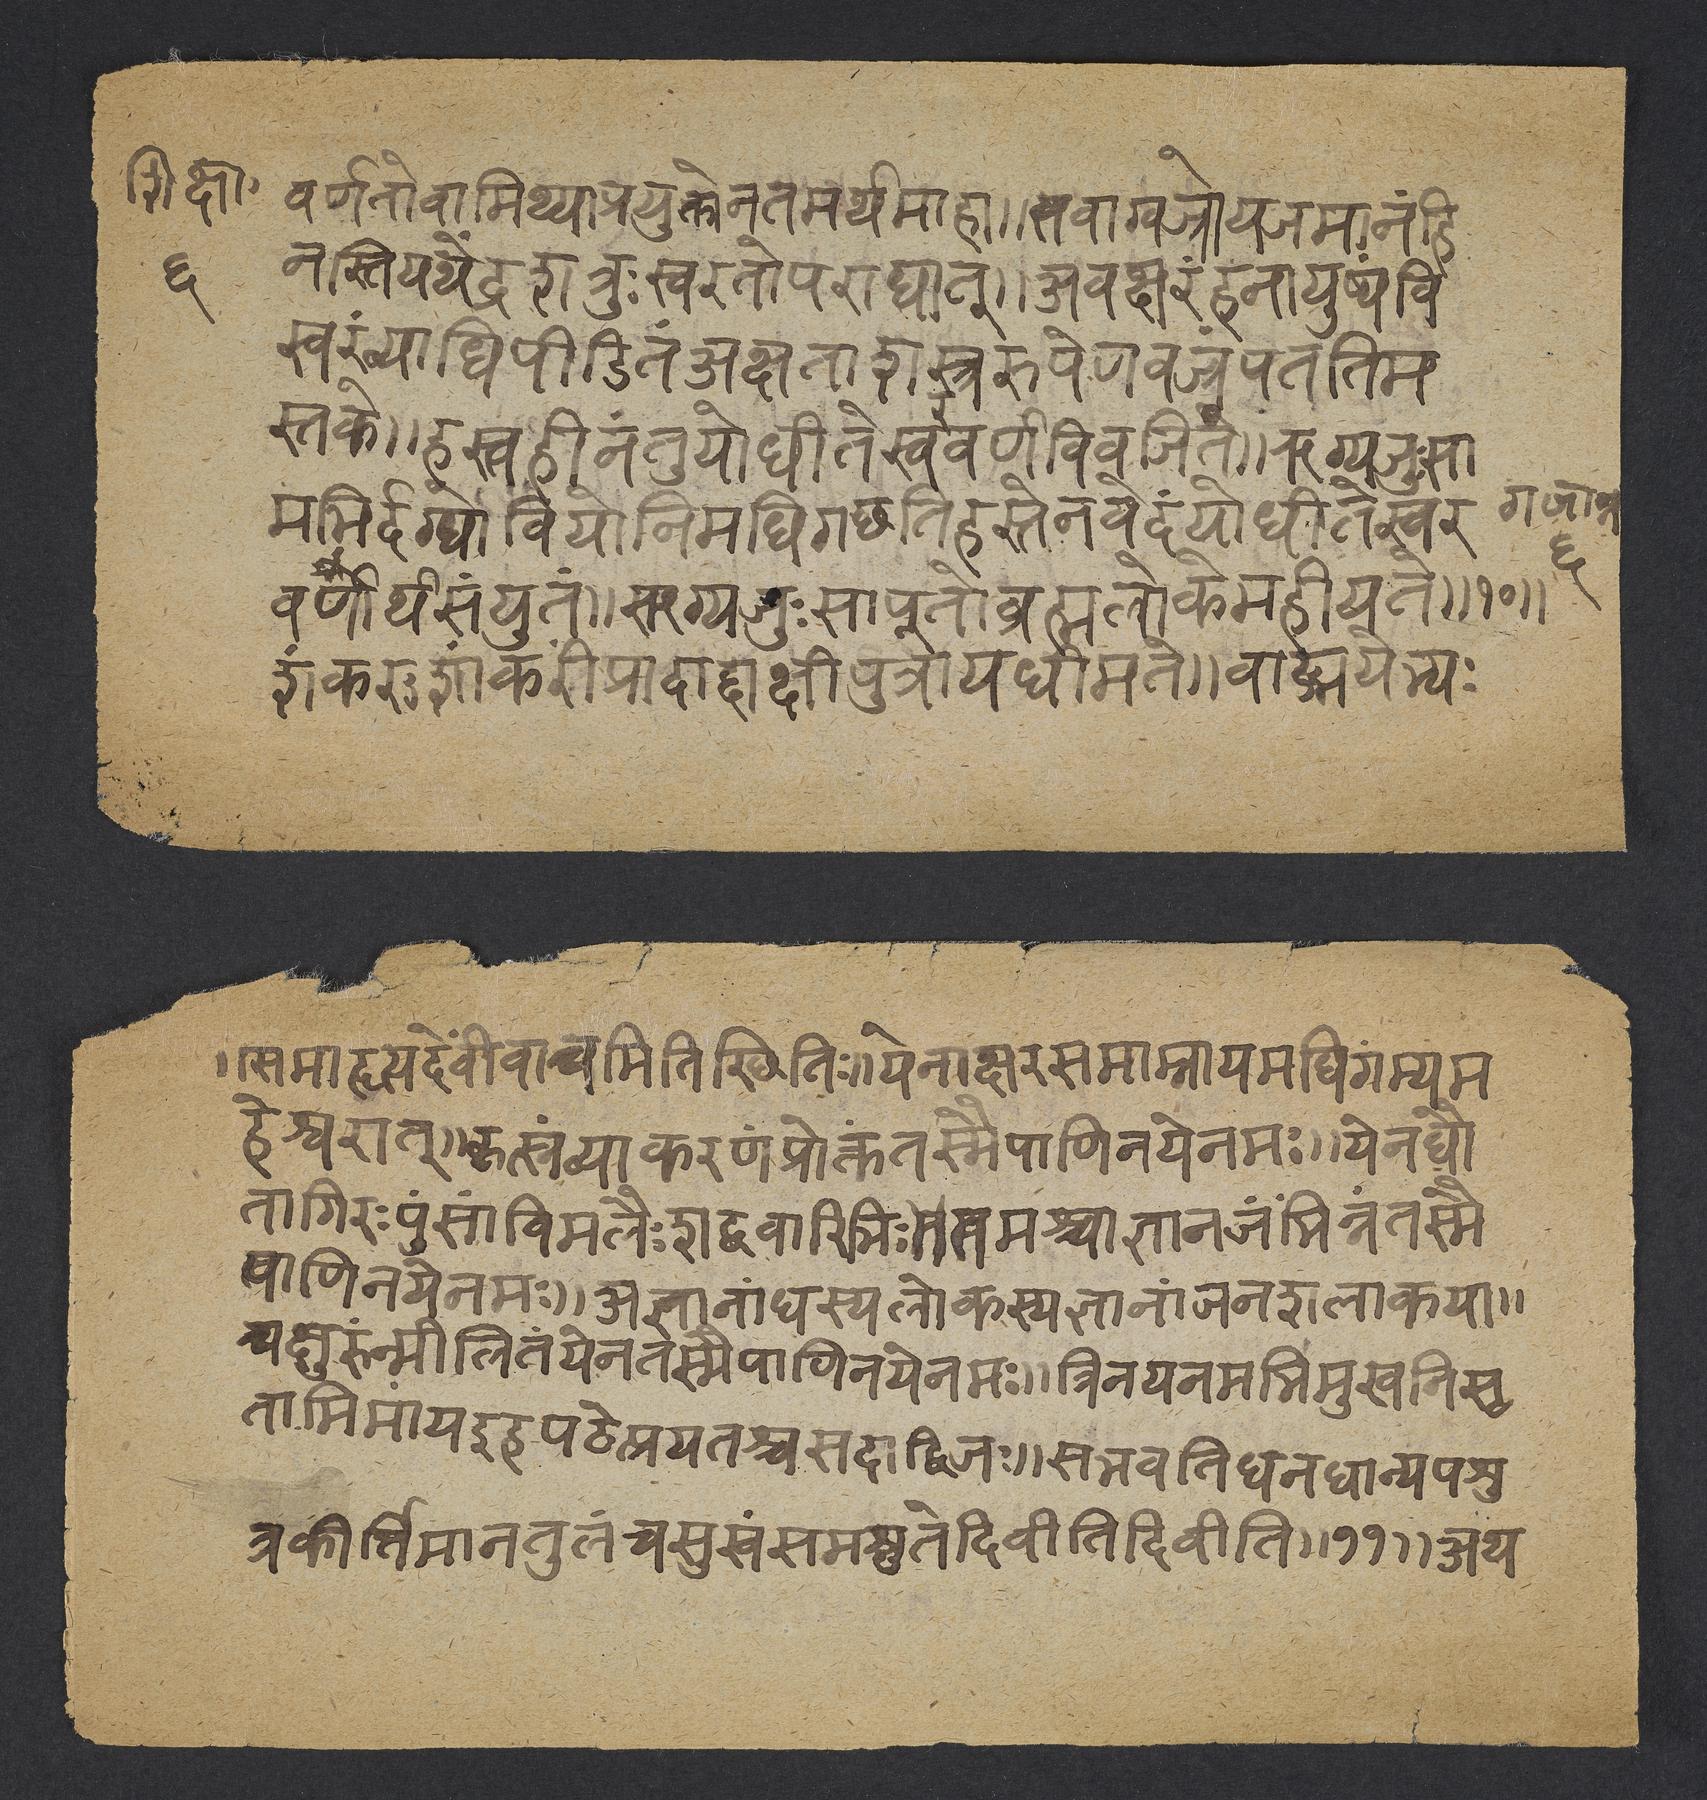 शिक्षा॰
६
वर्णतोवामिथ्याप्रयुक्तोनतमर्थमाहा॥सवाग्वज्रोयजमानंहि
नस्तियथेंद्रशत्रुःस्वरतोपराधात्॥अवक्षरंहनायुष्यंवि
स्वरंव्याधिपीडितंअक्षताशस्त्ररुपेणवज्रंपततिम
स्तके॥हस्वहीनंतुयोधीतेस्वरवर्णविवर्जितं॥ऋग्यजुःसा
मभिर्दग्धोवियोनिमधिगछतिहस्तेनवेदंयोधीतेस्वर
गजान
६
वर्णार्थसंयुतं॥ऋग्यजुःसापूतोब्रह्मलोकेमहीयते॥१०॥
शंकरःशांकरींप्रादाद्दाक्षीपुत्रायधीमते॥वाङ्मयेभ्यः
॥समाहृत्यदेवींवाचमितिस्थितिः॥येनाक्षरसमाम्नायमधिगंम्यम
हेश्वरात्॥कृत्स्नंव्याकरणंप्रोक्तंतस्मैपाणिनयेनमः॥येनधौ
तागिरःपुंसांविमलैःशद्बवारिभिः॥तमश्चाज्ञानजंभिन्नंतस्मै
पाणिनयेनमः॥अज्ञानांधस्यलोकस्यज्ञानांजनशलाकया॥
चक्षुरुंन्मीलितंयेनतस्मैपाणिनयेनमः॥त्रिनयनमभिमुखनिसृ
तामिमांयइहपठेत्प्रयतश्चसदाद्विजः॥सभवतिधनधान्यपशु
त्रकीर्त्तिमानतुलंचसुखंसमश्नुतेदिवीतिदिवीति॥११॥अथ